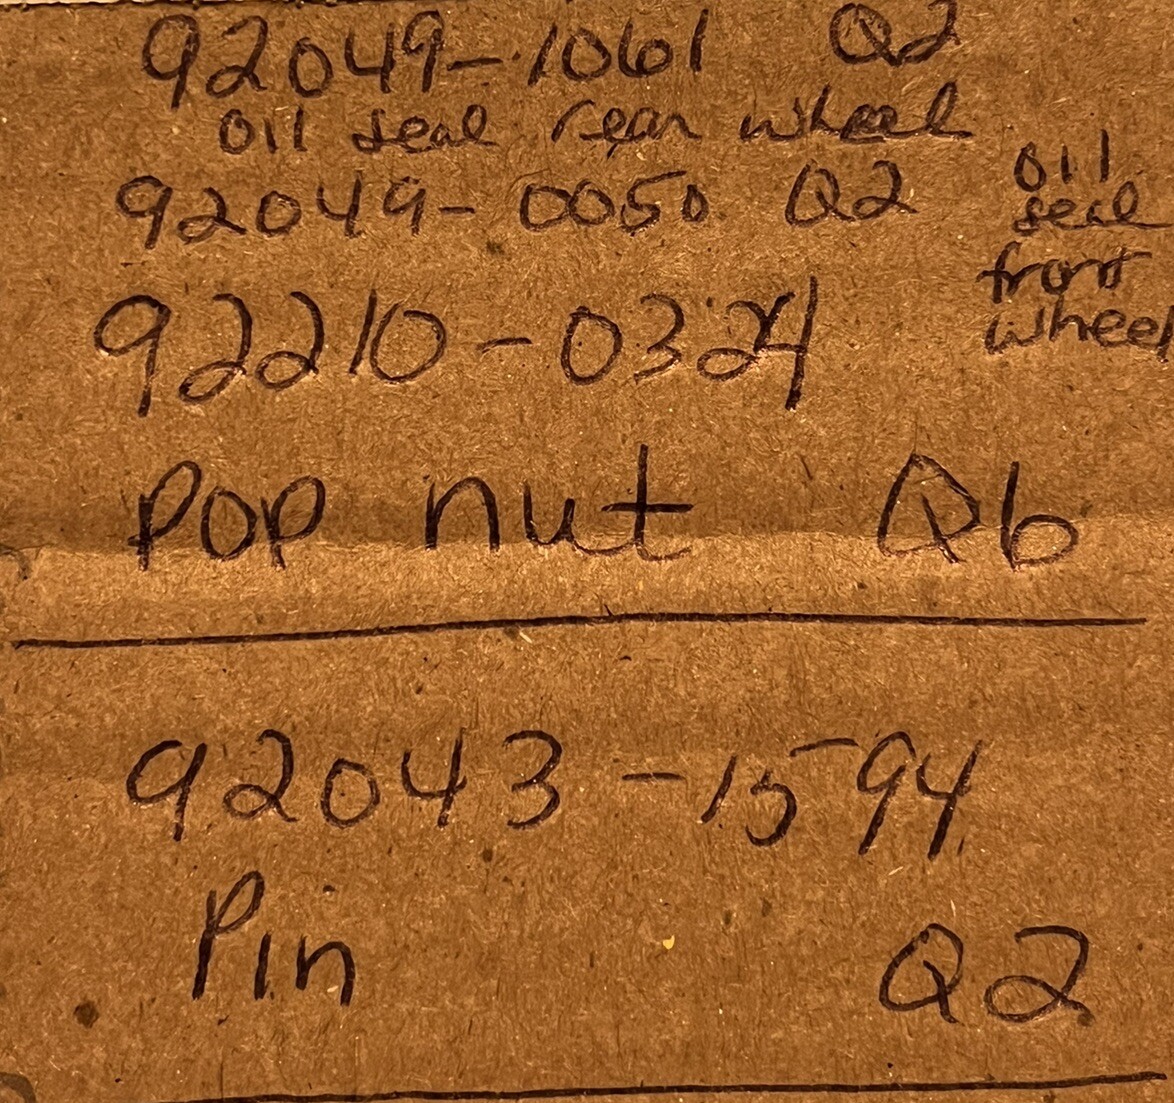 92049-1061 Q2
oil seal rear wheel
92049-0050 Q2
oil
seal
front
wheel
92210-0324
pop nut Q6
92043-1594
Pin Q2